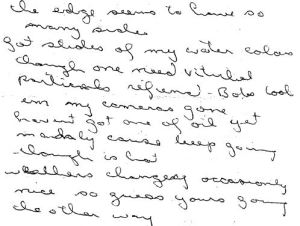 the edge seems to have so
many sides
got slides of my water colors
though one need
- Bob took
em my cameras gone
haven't got one of oil yet
cause keep going
though is hot
weathers changes occasionly
nice so guess yours going
the other way